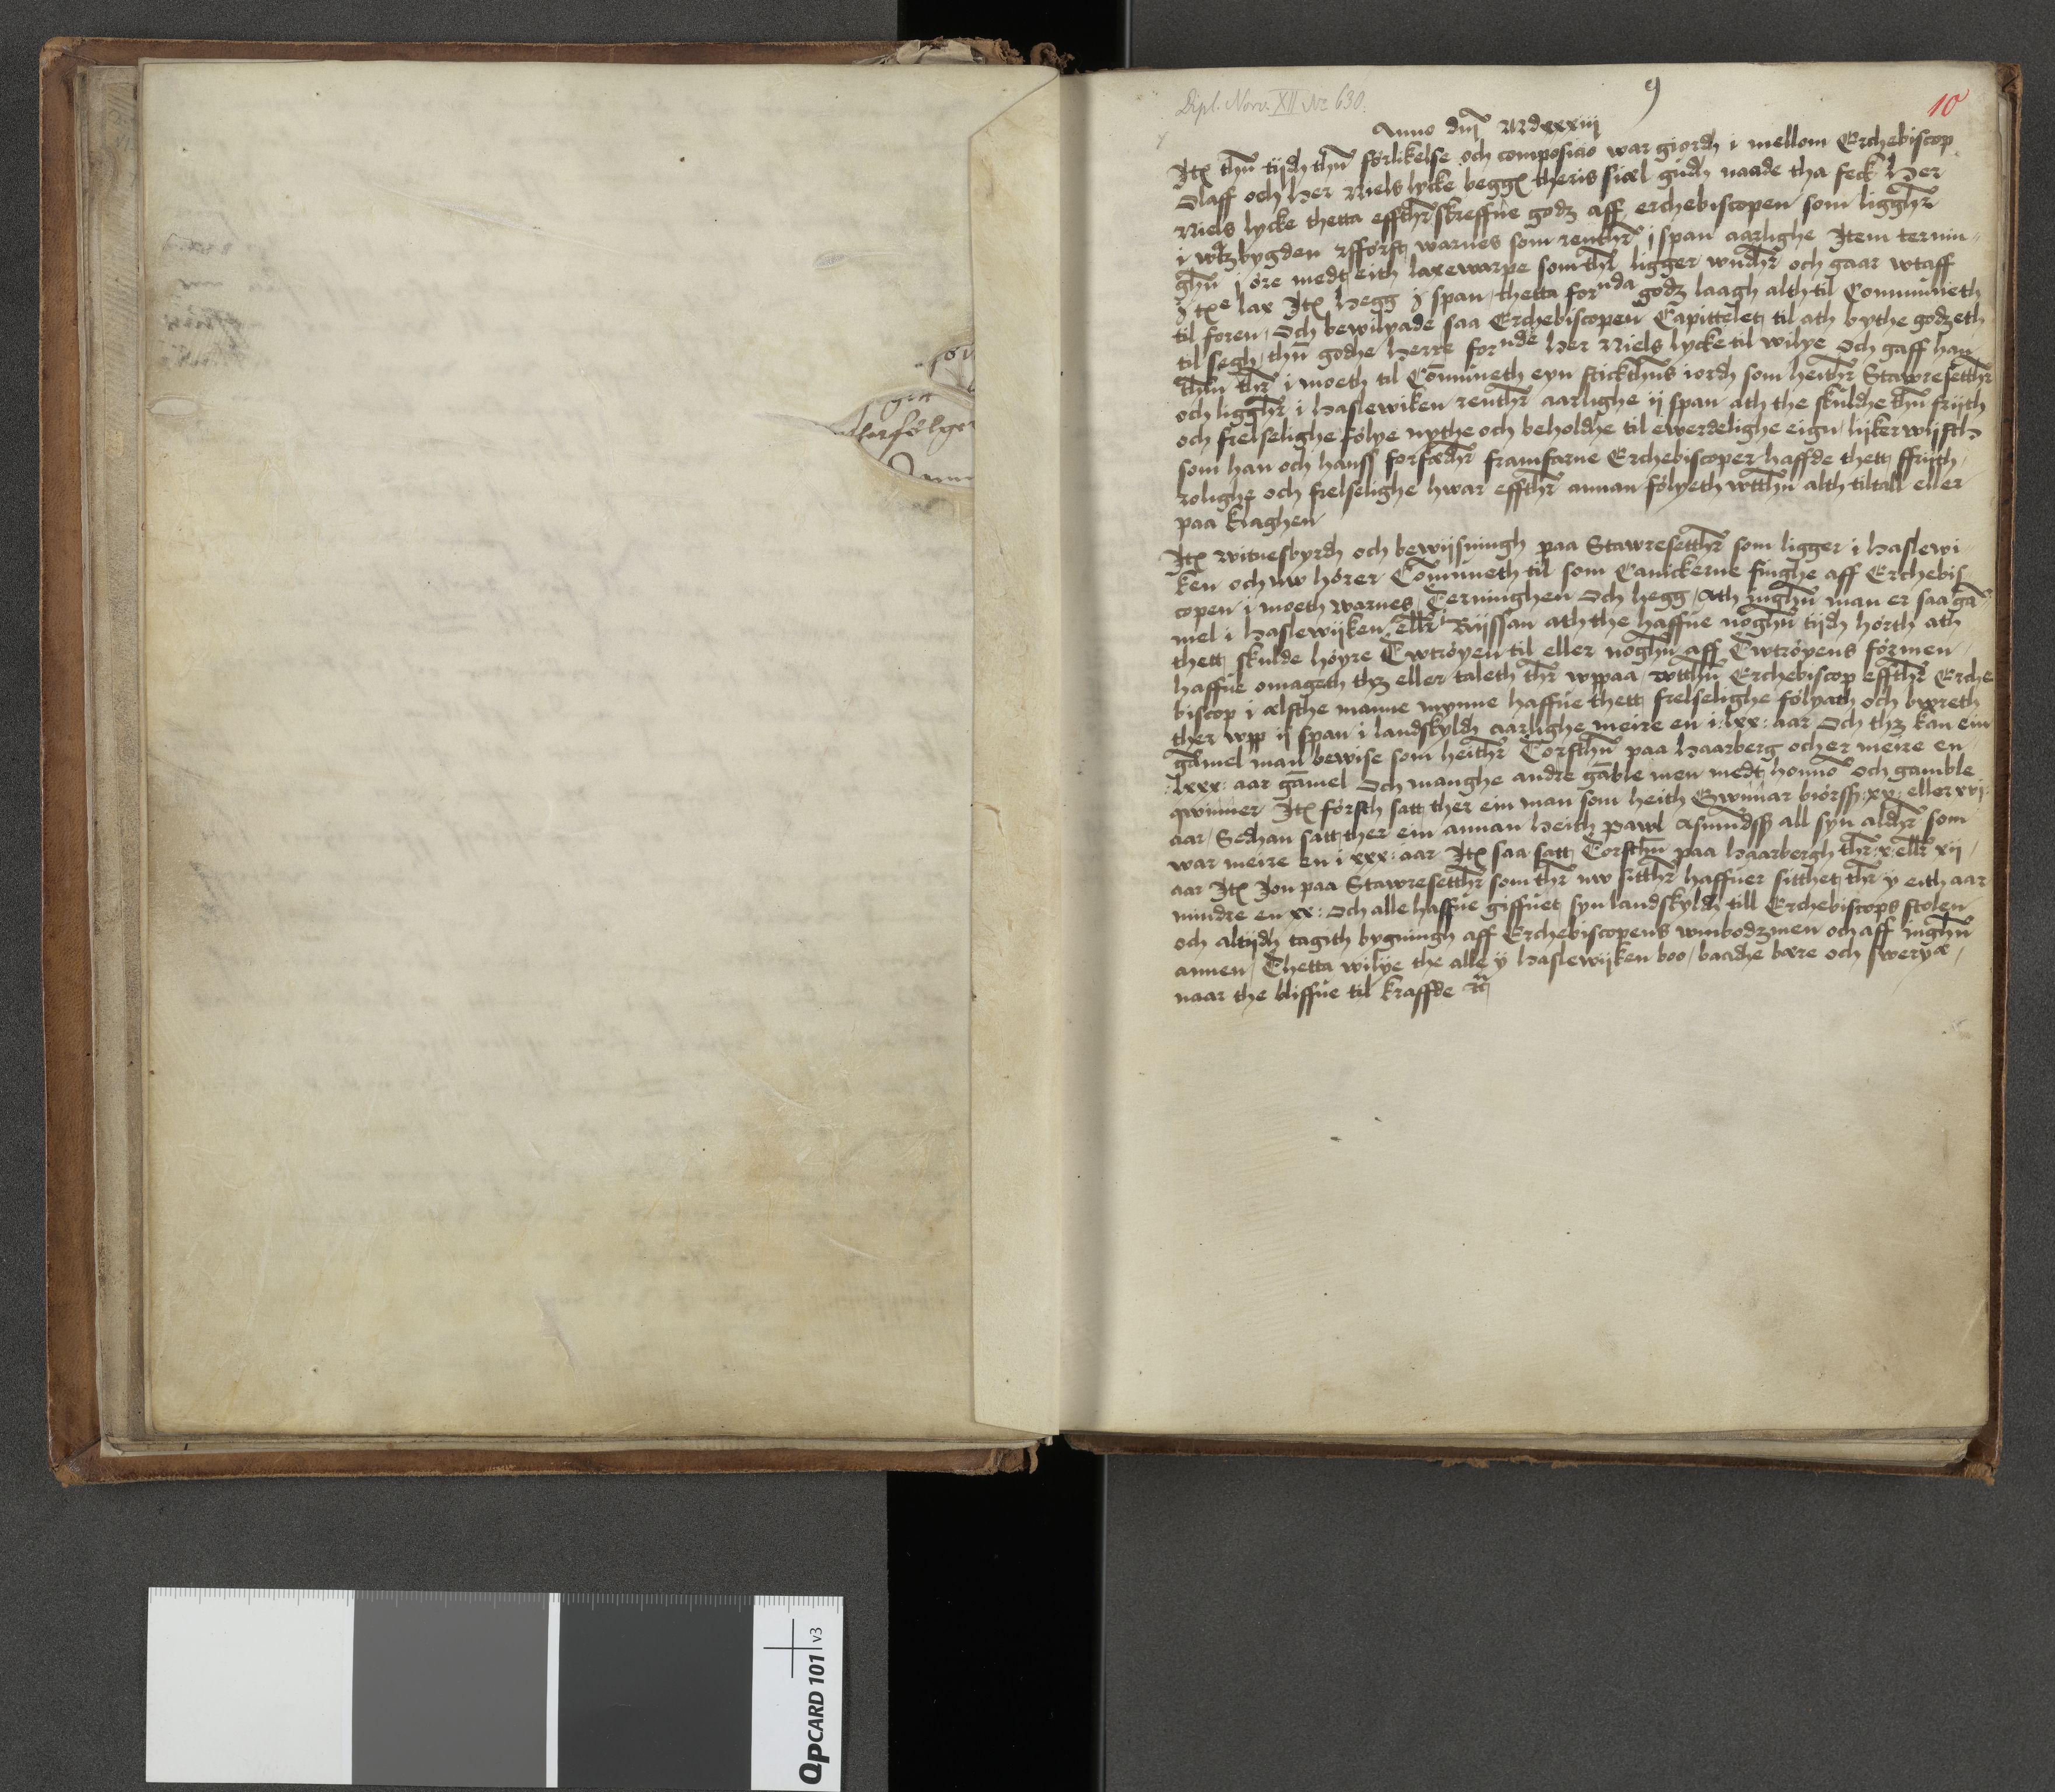 lerfölger
Dipl. Norv. XII Nr 630.
9
10
Anno dnj Mdxxiij
Itē thn̄ tijdh thn̄ förlikelse och composicio war giordh i mellom Erchebiscop
Olaff och her Niels lycke begges theris siæl gudh naade tha feck her
Niels lycke thetta effthr̄skreffne godz aff erchebiscopen som ligghr̄
i wtzbygden Fförst warnes som renthr̄ j span aarlighe Item ternin-
ghn̄ j öre medt eith laxewarpe som thr̄ ligger wndhr̄ och gaar wtaff
lax Itē hegg span thetta fornda godz laagh alth til Communeth
til foren, Och bewilyade saa Erchebiscopen Capittelet til ath bythe godzeth
til segh thn̄ godhe herre fornde her Niels lycke til wilye Och gaff han
thn̄ thr̄ i moeth til Cōmuneth eyn stickthns iordh som heithr̄ Stawresetthr̄
och ligghr̄ i haslewiken renthr̄ aarlighe ij span ath the skuldhe thn̄ frijth
och frelselighe fölye nythe och beholdhe til ewerdelighe eign, lijkerwijsth
som han och hanss forfædhr̄ framfarne Erchebiscoper haffde thett ffrijth
rolighe och frelselighe hwar effthr̄ annan fölyeth wtthn̄ alth tiltall eller
paa klaghen
Itē witnesbyrdh och bewijsningh paa Stawresetthr̄ som ligger i haslewi
ken och nw hörer Cōmuneth til som Canickerne finghe aff Erchebis
copen i moeth warnes, Terninghen Och hegg, Ath inghn̄ man er saa gā-
mel i haslewijken ellr̄ Rijssan ath the haffue noghn̄ tijdh hörth ath
thett skulde höyre Twtröyen til eller noghn̄ aff Twtröyens förmen
haffue omageth thz eller taleth thr̄ wppaa, wtthn̄ Erchebiscop effthr̄ Erche
biscop i ælsthe manne mynne haffue thett frelselighe fölyath och bæreth
ther wpp ij span i landskyldh aarlighe meire en i lxx: aar Och thz kan ein
gāmel man bewise som heithr̄ Torsthn̄ paa haarberg och er meire en
lxxx: aar gāmel Och manghe andre gāble men medt honno̅ och gamble
qwinner Itē försth satt ther ein man som heith Gwnnar biörss: xx: eller xvj:
aar, Sedhan satt ther ein annan heith Pawl Asmundss all syn aldhr̄ som
war meire en i xxx: aar Itē saa satt Torsthn̄ paa haarbergh thr̄ x ellr̄ xij
aar Itē Jon paa Stawresetthr̄ som thr̄ nw sitthr̄ haffuer sitthet thr̄ ÿ eith aar
mindre en xx: Och alle haffue giffuet syn landskyldh till Erchebiscops stolen
och altijdh tagith bygningh aff Erchebiscopens wmbodzmen och aff inghn̄
annen, Thetta wilye the alle ÿ haslewijken boo, baadhe bære och sweryæ,
naar the bliffue til kraffde
QpCARD 101 v3